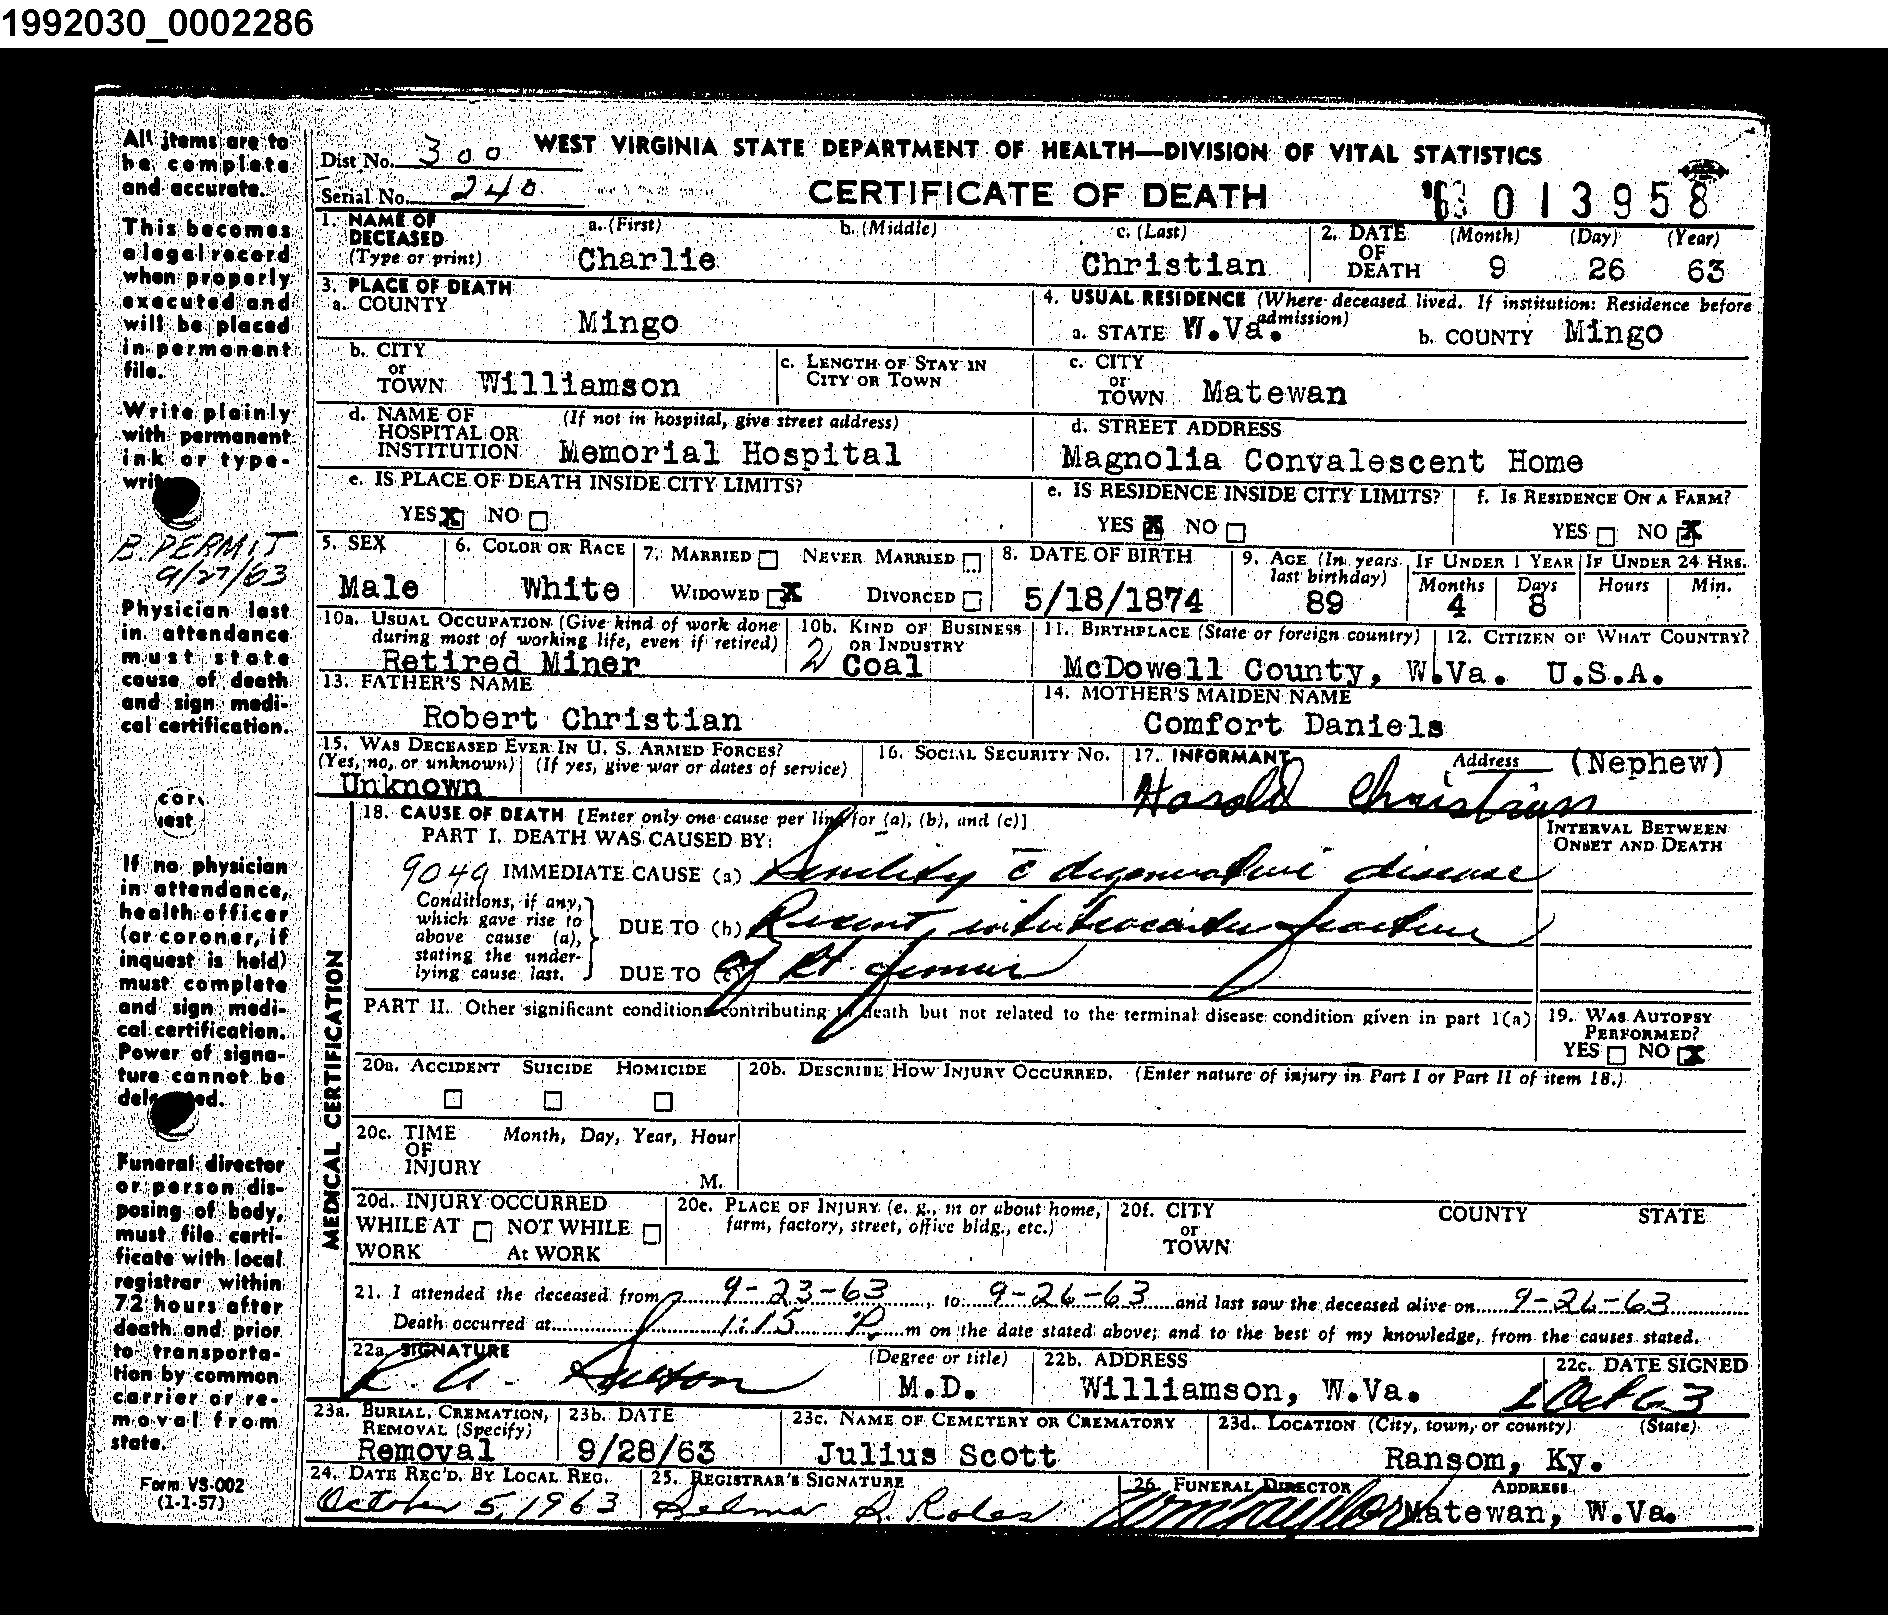 1992030_0002286
All items are to be complete and accurate.
This becomes a legal record when properly executed and will be placed in permanent file.
Write plainly with permanent ink or type-
B. PERMIT
9/27/63
Physician last in attendance must state cause of death and sign medical certification.
If no physician in attendance, health officer (or coroner, if inquest is held) must complete and sign medical certification. Power of signature cannot be
Funeral director or person disposing of body, must file certificate with local registrar within 72 hours after death and prior to transportation by common carrier or removal from state.
Form VS-002
(1-1-57)
Dist No. 300
WEST VIRGINIA STATE DEPARTMENT OF HEALTH—DIVISION OF VITAL STATISTICS
Serial No. 240
CERTIFICATE OF DEATH
63 013958
1. NAME OF DECEASED (Type or print)
a. (First) Charlie
b. (Middle)
c. (Last) Christian
2. DATE OF DEATH (Month) (Day) (Year)
9 26 63
3. PLACE OF DEATH
a. COUNTY Mingo
4. USUAL RESIDENCE (Where deceased lived. If institution: Residence before admission)
a. STATE W.Va. b. COUNTY Mingo
b. CITY or TOWN Williamson
c. LENGTH OF STAY IN CITY OR TOWN
c. CITY or TOWN Matewan
d. NAME OF HOSPITAL OR INSTITUTION (If not in hospital, give street address)
Memorial Hospital
d. STREET ADDRESS
Magnolia Convalescent Home
e. IS PLACE OF DEATH INSIDE CITY LIMITS?
YES X NO
e. IS RESIDENCE INSIDE CITY LIMITS?
YES X NO
f. IS RESIDENCE ON A FARM?
YES NO X
5. SEX
Male
6. COLOR OR RACE
White
7. MARRIED NEVER MARRIED
WIDOWED X DIVORCED
8. DATE OF BIRTH
5/18/1874
9. AGE (In years last birthday)
89
IF UNDER 1 YEAR
Months Days
4 8
IF UNDER 24 HRS.
Hours Min.
10a. USUAL OCCUPATION (Give kind of work done during most of working life, even if retired)
Retired Miner
10b. KIND OF BUSINESS OR INDUSTRY
2 Coal
11. BIRTHPLACE (State or foreign country)
McDowell County, W.Va.
12. CITIZEN OF WHAT COUNTRY?
U.S.A.
13. FATHER'S NAME
Robert Christian
14. MOTHER'S MAIDEN NAME
Comfort Daniels
15. WAS DECEASED EVER IN U. S. ARMED FORCES?
(Yes, no, or unknown) (If yes, give war or dates of service)
Unknown
16. SOCIAL SECURITY No.
17. INFORMANT Address (Nephew)
Harold Christian
MEDICAL CERTIFICATION
18. CAUSE OF DEATH [Enter only one cause per line for (a), (b), and (c)]
PART I. DEATH WAS CAUSED BY:
INTERVAL BETWEEN ONSET AND DEATH
9049 IMMEDIATE CAUSE (a) Senility c̄ degenerative disease
Conditions, if any, which gave rise to above cause (a), stating the underlying cause last.
DUE TO (b) Recent intertrocanter fracture
DUE TO (c) of Rt. femur
PART II. Other significant conditions contributing to death but not related to the terminal disease condition given in part I(a)
19. WAS AUTOPSY PERFORMED?
YES NO X
20a. ACCIDENT SUICIDE HOMICIDE
20b. DESCRIBE HOW INJURY OCCURRED. (Enter nature of injury in Part I or Part II of item 18.)
20c. TIME OF INJURY Month, Day, Year, Hour
M.
20d. INJURY OCCURRED
WHILE AT WORK NOT WHILE AT WORK
20e. PLACE OF INJURY (e. g., in or about home, farm, factory, street, office bldg., etc.)
20f. CITY or TOWN COUNTY STATE
21. I attended the deceased from 9-23-63, to 9-26-63 and last saw the deceased alive on 9-26-63
Death occurred at 1:15 P. m on the date stated above; and to the best of my knowledge, from the causes stated.
22a. SIGNATURE (Degree or title)
M.D.
22b. ADDRESS
Williamson, W.Va.
22c. DATE SIGNED
Oct 63
23a. BURIAL, CREMATION, REMOVAL (Specify)
Removal
23b. DATE
9/28/63
23c. NAME OF CEMETERY OR CREMATORY
Julius Scott
23d. LOCATION (City, town, or county) (State)
Ransom, Ky.
24. DATE REC'D. BY LOCAL REG.
October 5, 1963
25. REGISTRAR'S SIGNATURE
Selma S. Roles
26. FUNERAL DIRECTOR ADDRESS
Matewan, W.Va.